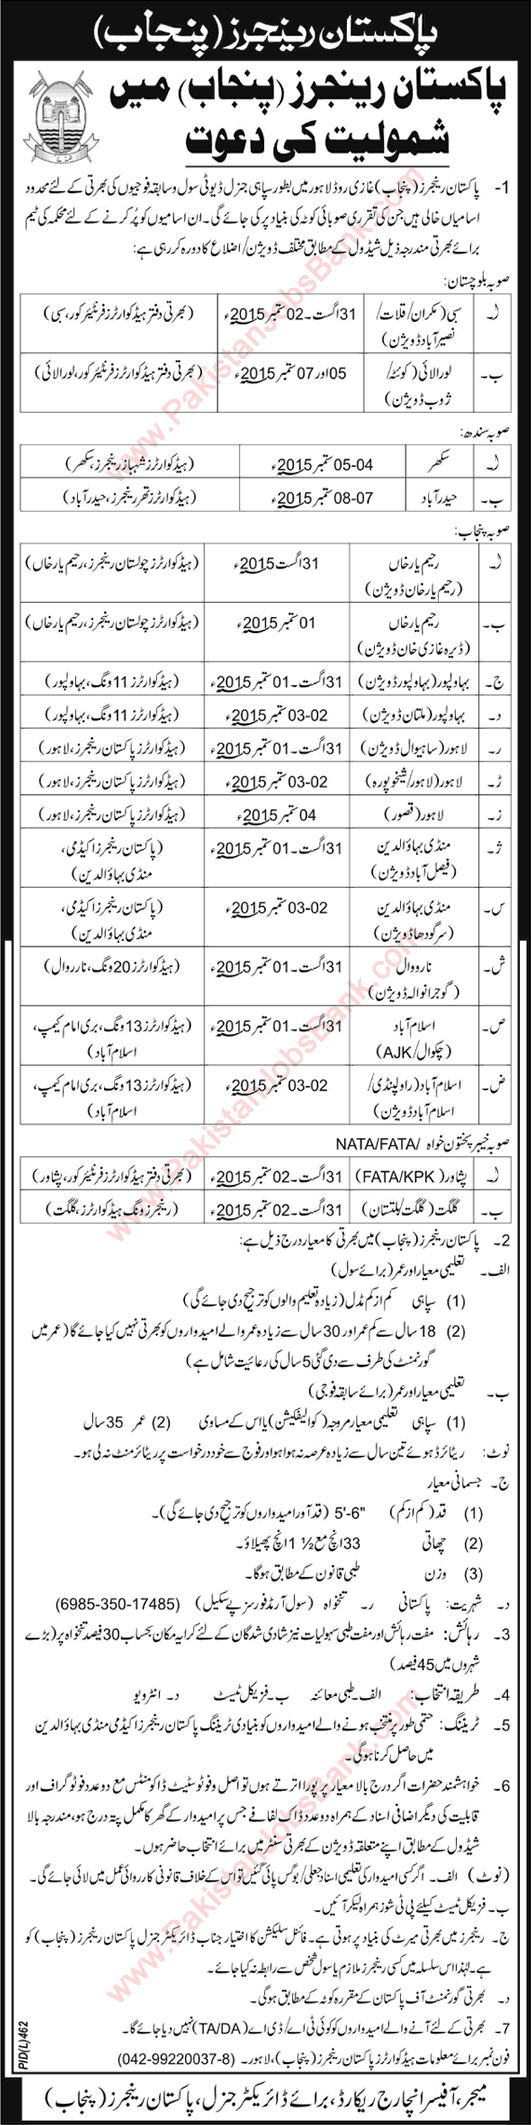 پاکستان رینجرز (پنجاب)
پاکستان رینجرز (پنجاب) میں
شمولیت کی دعوت
1- پاکستان رینجرز (پنجاب) غازی روڈ لاہور میں بطور سپاہی جنرل ڈیوٹی سول و سابقہ فوجیوں کی بھرتی کے لئے محدود
اسامیاں خالی ہیں جن کی تقرری صوبائی کوٹہ کی بنیاد پر کی جائے گی۔ ان اسامیوں کو پُر کرنے کے لئے محکمہ کی ٹیم
برائے بھرتی مندرجہ ذیل شیڈول کے مطابق مختلف ڈویژن/اضلاع کا دورہ کر رہی ہے:
صوبہ بلوچستان:
ل۔ سبی (مکران/قلات/ 31 اگست۔02 ستمبر 2015ء (بھرتی دفتر ہیڈکوارٹرز فرنٹیئر کور، سبی)
نصیر آباد ڈویژن)
ب۔ لورالائی (کوئٹہ/ 05 اور 07 ستمبر 2015ء (بھرتی دفتر ہیڈکوارٹرز فرنٹیئر کور، لورالائی)
ژوب ڈویژن)
صوبہ سندھ:
ل۔ سکھر 04-05 ستمبر 2015ء (ہیڈکوارٹرز شہباز رینجرز، سکھر)
ب۔ حیدر آباد 07-08 ستمبر 2015ء (ہیڈکوارٹرز تھر رینجرز، حیدر آباد)
صوبہ پنجاب:
ل۔ رحیم یار خاں 31 اگست 2015ء (ہیڈکوارٹرز چولستان رینجرز، رحیم یار خاں)
(رحیم یار خان ڈویژن)
ب۔ رحیم یار خاں 01 ستمبر 2015ء (ہیڈکوارٹرز چولستان رینجرز، رحیم یار خاں)
(ڈیرہ غازی خان ڈویژن)
ج۔ بہاولپور (بہاولپور ڈویژن) 31 اگست۔01 ستمبر 2015ء (ہیڈکوارٹرز 11 ونگ، بہاولپور)
د۔ بہاولپور (ملتان ڈویژن) 02-03 ستمبر 2015ء (ہیڈکوارٹرز 11 ونگ، بہاولپور)
ر۔ لاہور (ساہیوال ڈویژن) 31 اگست۔01 ستمبر 2015ء (ہیڈکوارٹرز پاکستان رینجرز، لاہور)
ڑ۔ لاہور (لاہور/شیخوپورہ) 02-03 ستمبر 2015ء (ہیڈکوارٹرز پاکستان رینجرز، لاہور)
ز۔ لاہور (قصور) 04 ستمبر 2015ء (ہیڈکوارٹرز پاکستان رینجرز، لاہور)
ژ۔ منڈی بہاؤالدین 31 اگست۔01 ستمبر 2015ء (پاکستان رینجرز اکیڈمی،
(فیصل آباد ڈویژن) منڈی بہاؤالدین)
س۔ منڈی بہاؤالدین 02-03 ستمبر 2015ء (پاکستان رینجرز اکیڈمی،
(سرگودھا ڈویژن) منڈی بہاؤالدین)
ش۔ نارووال 31 اگست۔01 ستمبر 2015ء (ہیڈکوارٹرز 20 ونگ، نارووال)
(گوجرانوالہ ڈویژن)
ص۔ اسلام آباد 31 اگست۔01 ستمبر 2015ء (ہیڈکوارٹرز 13 ونگ، بری امام کیمپ،
(چکوال/AJK) اسلام آباد)
ض۔ اسلام آباد (راولپنڈی/ 02-03 ستمبر 2015ء (ہیڈکوارٹرز 13 ونگ، بری امام کیمپ،
اسلام آباد ڈویژن) اسلام آباد)
صوبہ خیبر پختون خواہ /NATA/FATA
ل۔ پشاور (FATA/KPK) 31 اگست۔02 ستمبر 2015ء (بھرتی دفتر ہیڈکوارٹرز فرنٹیئر کور، پشاور)
ب۔ گلگت (گلگت/بلتستان) 31 اگست۔02 ستمبر 2015ء (رینجرز ونگ ہیڈکوارٹرز، گلگت)
2- پاکستان رینجرز (پنجاب) میں بھرتی کا معیار درج ذیل ہے:
الف۔ تعلیمی معیار اور عمر (برائے سول)
(1) سپاہی کم از کم مڈل (زیادہ تعلیم والوں کو ترجیح دی جائے گی)
(2) 18 سال سے کم عمر اور 30 سال سے زیادہ عمر والے امیدواروں کو بھرتی نہیں کیا جائے گا (عمر میں
گورنمنٹ کی طرف سے دی گئی 5 سال کی رعائیت شامل ہے)
ب۔ تعلیمی معیار اور عمر (برائے سابقہ فوجی)
(1) سپاہی تعلیمی معیار مروجہ (کوالیفکیشن) یا اس کے مساوی (2) عمر 35 سال
نوٹ: ریٹائرڈ ہوئے تین سال سے زیادہ عرصہ نہ ہوا ہو اور فوج سے خود درخواست پر ریٹائرمنٹ نہ لی ہو۔
ج۔ جسمانی معیار
(1) قد (کم از کم) 5'-6" (قد آور امیدواروں کو ترجیح دی جائے گی)۔
(2) چھاتی 33 انچ مع 1½ انچ پھیلاؤ۔
(3) وزن طبی قانون کے مطابق ہوگا۔
د۔ شہریت: پاکستانی ر۔ تنخواہ (سول آرمڈ فورسز پے سکیل) (6985-350-17485)
3- رہائش: مفت رہائش اور مفت طبی سہولیات نیز شادی شدگان کے لئے کرایہ مکان بحساب 30 فیصد تنخواہ پر (بڑے
شہروں میں 45 فیصد)
4- طریقہ انتخاب: الف۔ طبی معائنہ ب۔ فزیکل ٹیسٹ د۔ انٹرویو
5- ٹریننگ: حتمی طور پر منتخب ہونے والے امیدواروں کو بنیادی ٹریننگ پاکستان رینجرز اکیڈمی منڈی بہاؤالدین
میں حاصل کرنا ہوگی۔
6- خواہشمند حضرات اگر درج بالا معیار پر پورا اترتے ہوں تو اصل و فوٹو سٹیٹ ڈاکومنٹس مع دو عدد فوٹو گراف اور
قابلیت کی دیگر اضافی اسناد کے ہمراہ دو عدد ڈاک لفافے جس پر امیدوار کے گھر کا مکمل پتہ درج ہو، مندرجہ بالا
شیڈول کے مطابق اپنے متعلقہ ڈویژن کے بھرتی سنٹر میں برائے انتخاب حاضر ہوں۔
(نوٹ) الف۔ اگر کسی امیدوار کی تعلیمی اسناد جعلی/بوگس پائی گئیں تو اس کے خلاف قانونی کارروائی عمل میں لائی جائے گی۔
ب۔ فزیکل ٹیسٹ کیلئے پی ٹی شوز ہمراہ لیکر آئیں۔
ج۔ رینجرز میں بھرتی میرٹ کی بنیاد پر ہوتی ہے۔ فائنل سلیکشن کا اختیار جناب ڈائریکٹر جنرل پاکستان رینجرز (پنجاب) کو
ہے۔ لہٰذا اس سلسلہ میں کسی رینجرز ملازم یا سول شخص سے رابطہ نہ کیا جائے۔
د۔ بھرتی گورنمنٹ آف پاکستان کے مقررہ کوٹہ کے مطابق ہوگی۔
7- بھرتی کے لئے آنے والے امیدواروں کو کوئی ٹی اے/ڈی اے (TA/DA) نہیں دیا جائے گا۔
فون نمبر برائے معلومات ہیڈکوارٹرز پاکستان رینجرز (پنجاب)، لاہور۔ (042-99220037-8)
PID(L)462
میجر، آفیسر انچارج ریکارڈ، برائے ڈائریکٹر جنرل، پاکستان رینجرز (پنجاب)
www.PakistanJobsBank.com
www.PakistanJobsBank.com
www.PakistanJobsBank.com